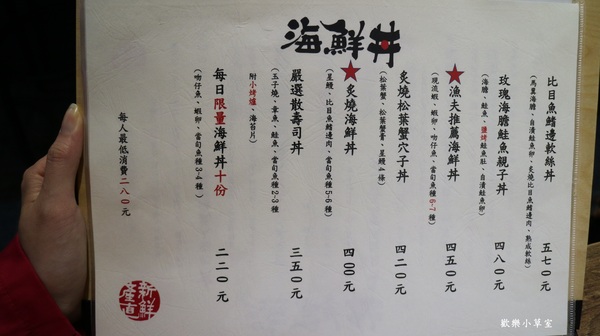 海鮮丼
比目魚鰭邊軟絲丼
五七0元
(馬糞海膽、自漬鮭魚卵、炙燒比目魚鰭邊肉、熟成軟絲)
玫瑰海膽鮭魚親子丼
四八0元
(海膽、鮭魚、鹽烤鮭魚肚、自漬鮭魚卵)
★漁夫推薦海鮮丼
四五0元
(現流蝦、蝦卵、吻仔魚、當旬魚種6-7種)
炙燒松葉蟹穴子丼
四二0元
(松葉蟹、松葉蟹膏、星鰻4條)
★炙燒海鮮丼
四00元
(星鰻、比目魚鰭邊肉、當旬魚種5-6種)
嚴選散壽司丼
三五0元
(玉子燒、章魚、鮭魚、當旬魚種2-3種)
附小烤爐、海苔片)
每日限量海鮮丼十份
二二0元
(吻仔魚、蝦卵、當旬魚種3-4種)
每人最低消費二八0元
新鮮直產
歡樂小草室